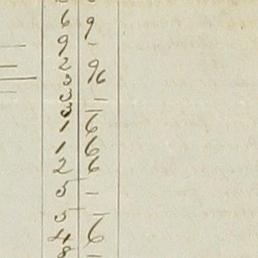 6 9
9 -
2 9
3 6
3 -
3 -
1 6
1 6
2 6
5 -
5 -
4 6
8 -